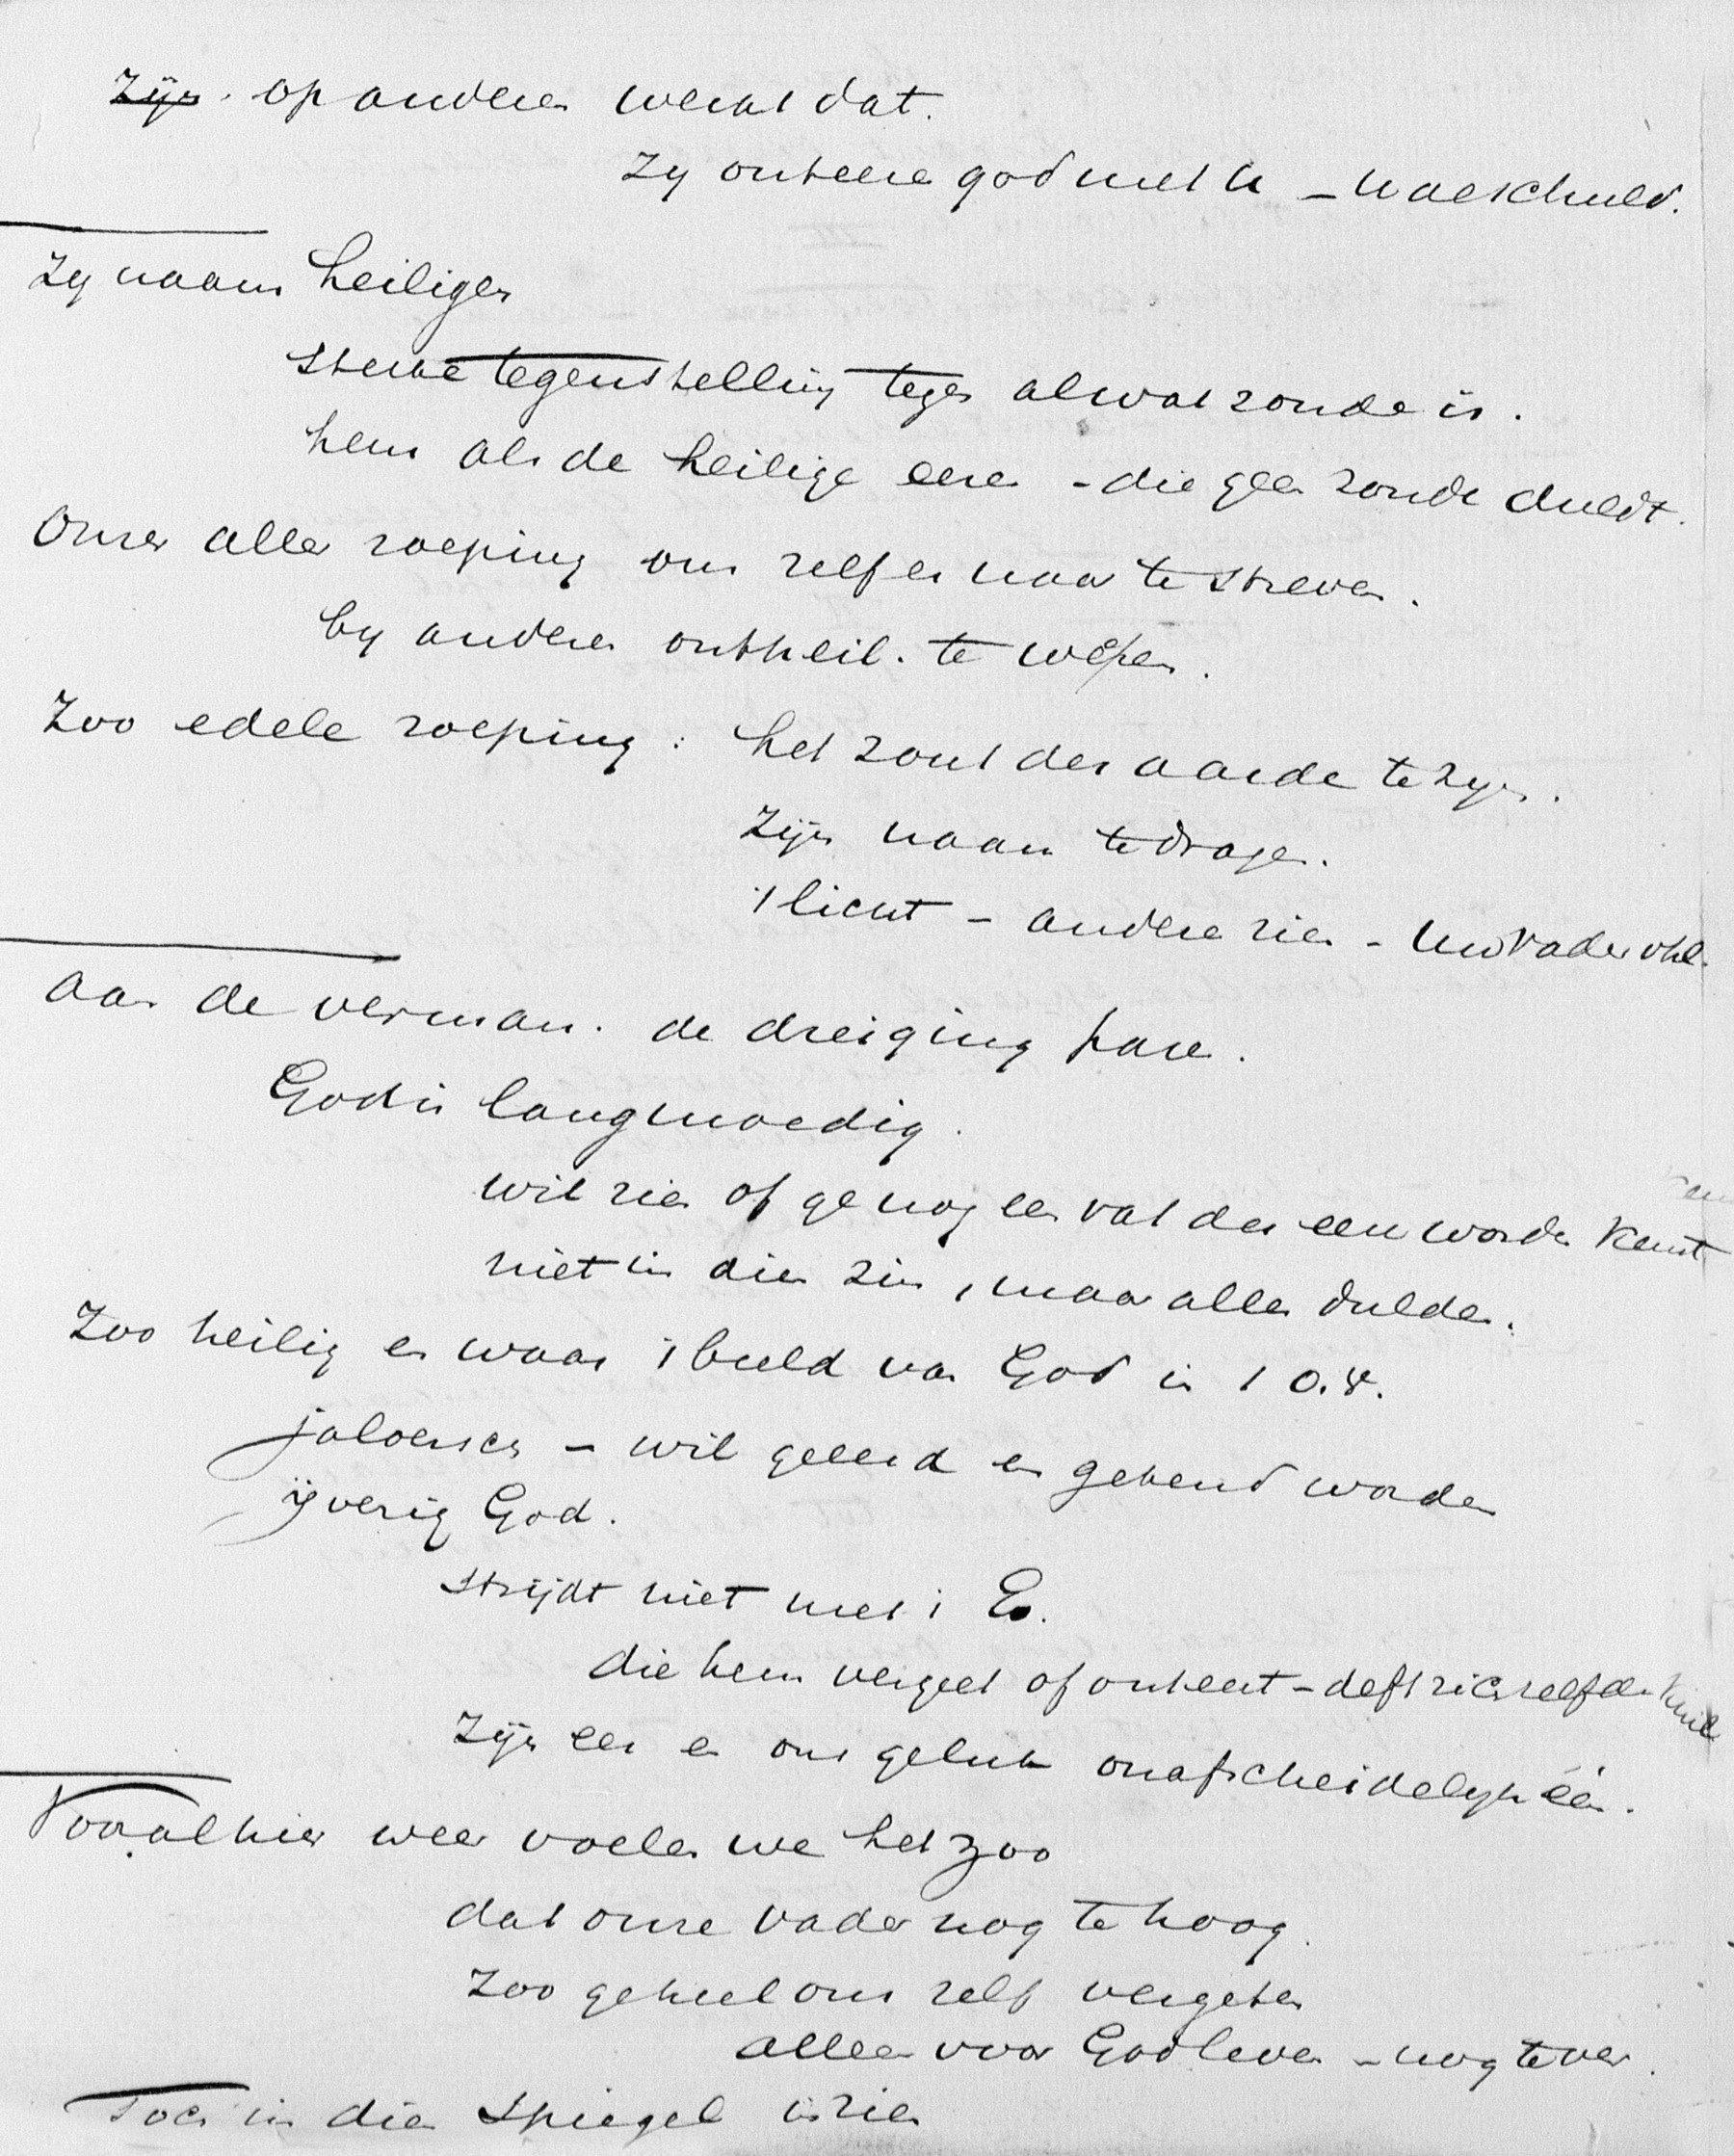 Zijn. op anderen werkt dat.
Zy onteere god niet h - uwe schuld.
Zy naam heiligen
sterke tegenstelling tegen al wat zonde is.
hem als de heilige eeren - die geen zonde duldt.
Onzer aller roeping om zelf er naar te streven.
by anderen ontheil. te weren.
Zoo edele roeping: het zout der aarde te zyn.
Zijn naam te dragen.
't licht - andere zien - Uw Vader vhl.
Aan de verman. de dreiging paren.
God is langmoedig.
wil zien of ge nog een vat der eere worden kunt
niet in dien zin, maar alles dulden.
Zoo heilig en waar 't beeld van God in 't O.V.
jaloersch - wil geeerd en gekend worden
ijverig God.
strijdt niet met 't E.
die hem vergeet of onteert - delft zich zelf den kuil
Zijn eer en ons geluk onafscheidelyk één.
Vooral hier weer voelen we het zoo
dat onze vader nog te hoog.
Zoo geheel ons zelf vergeten
alleen voor God leven - nog te ver.
Toch in dien spiegel is zien